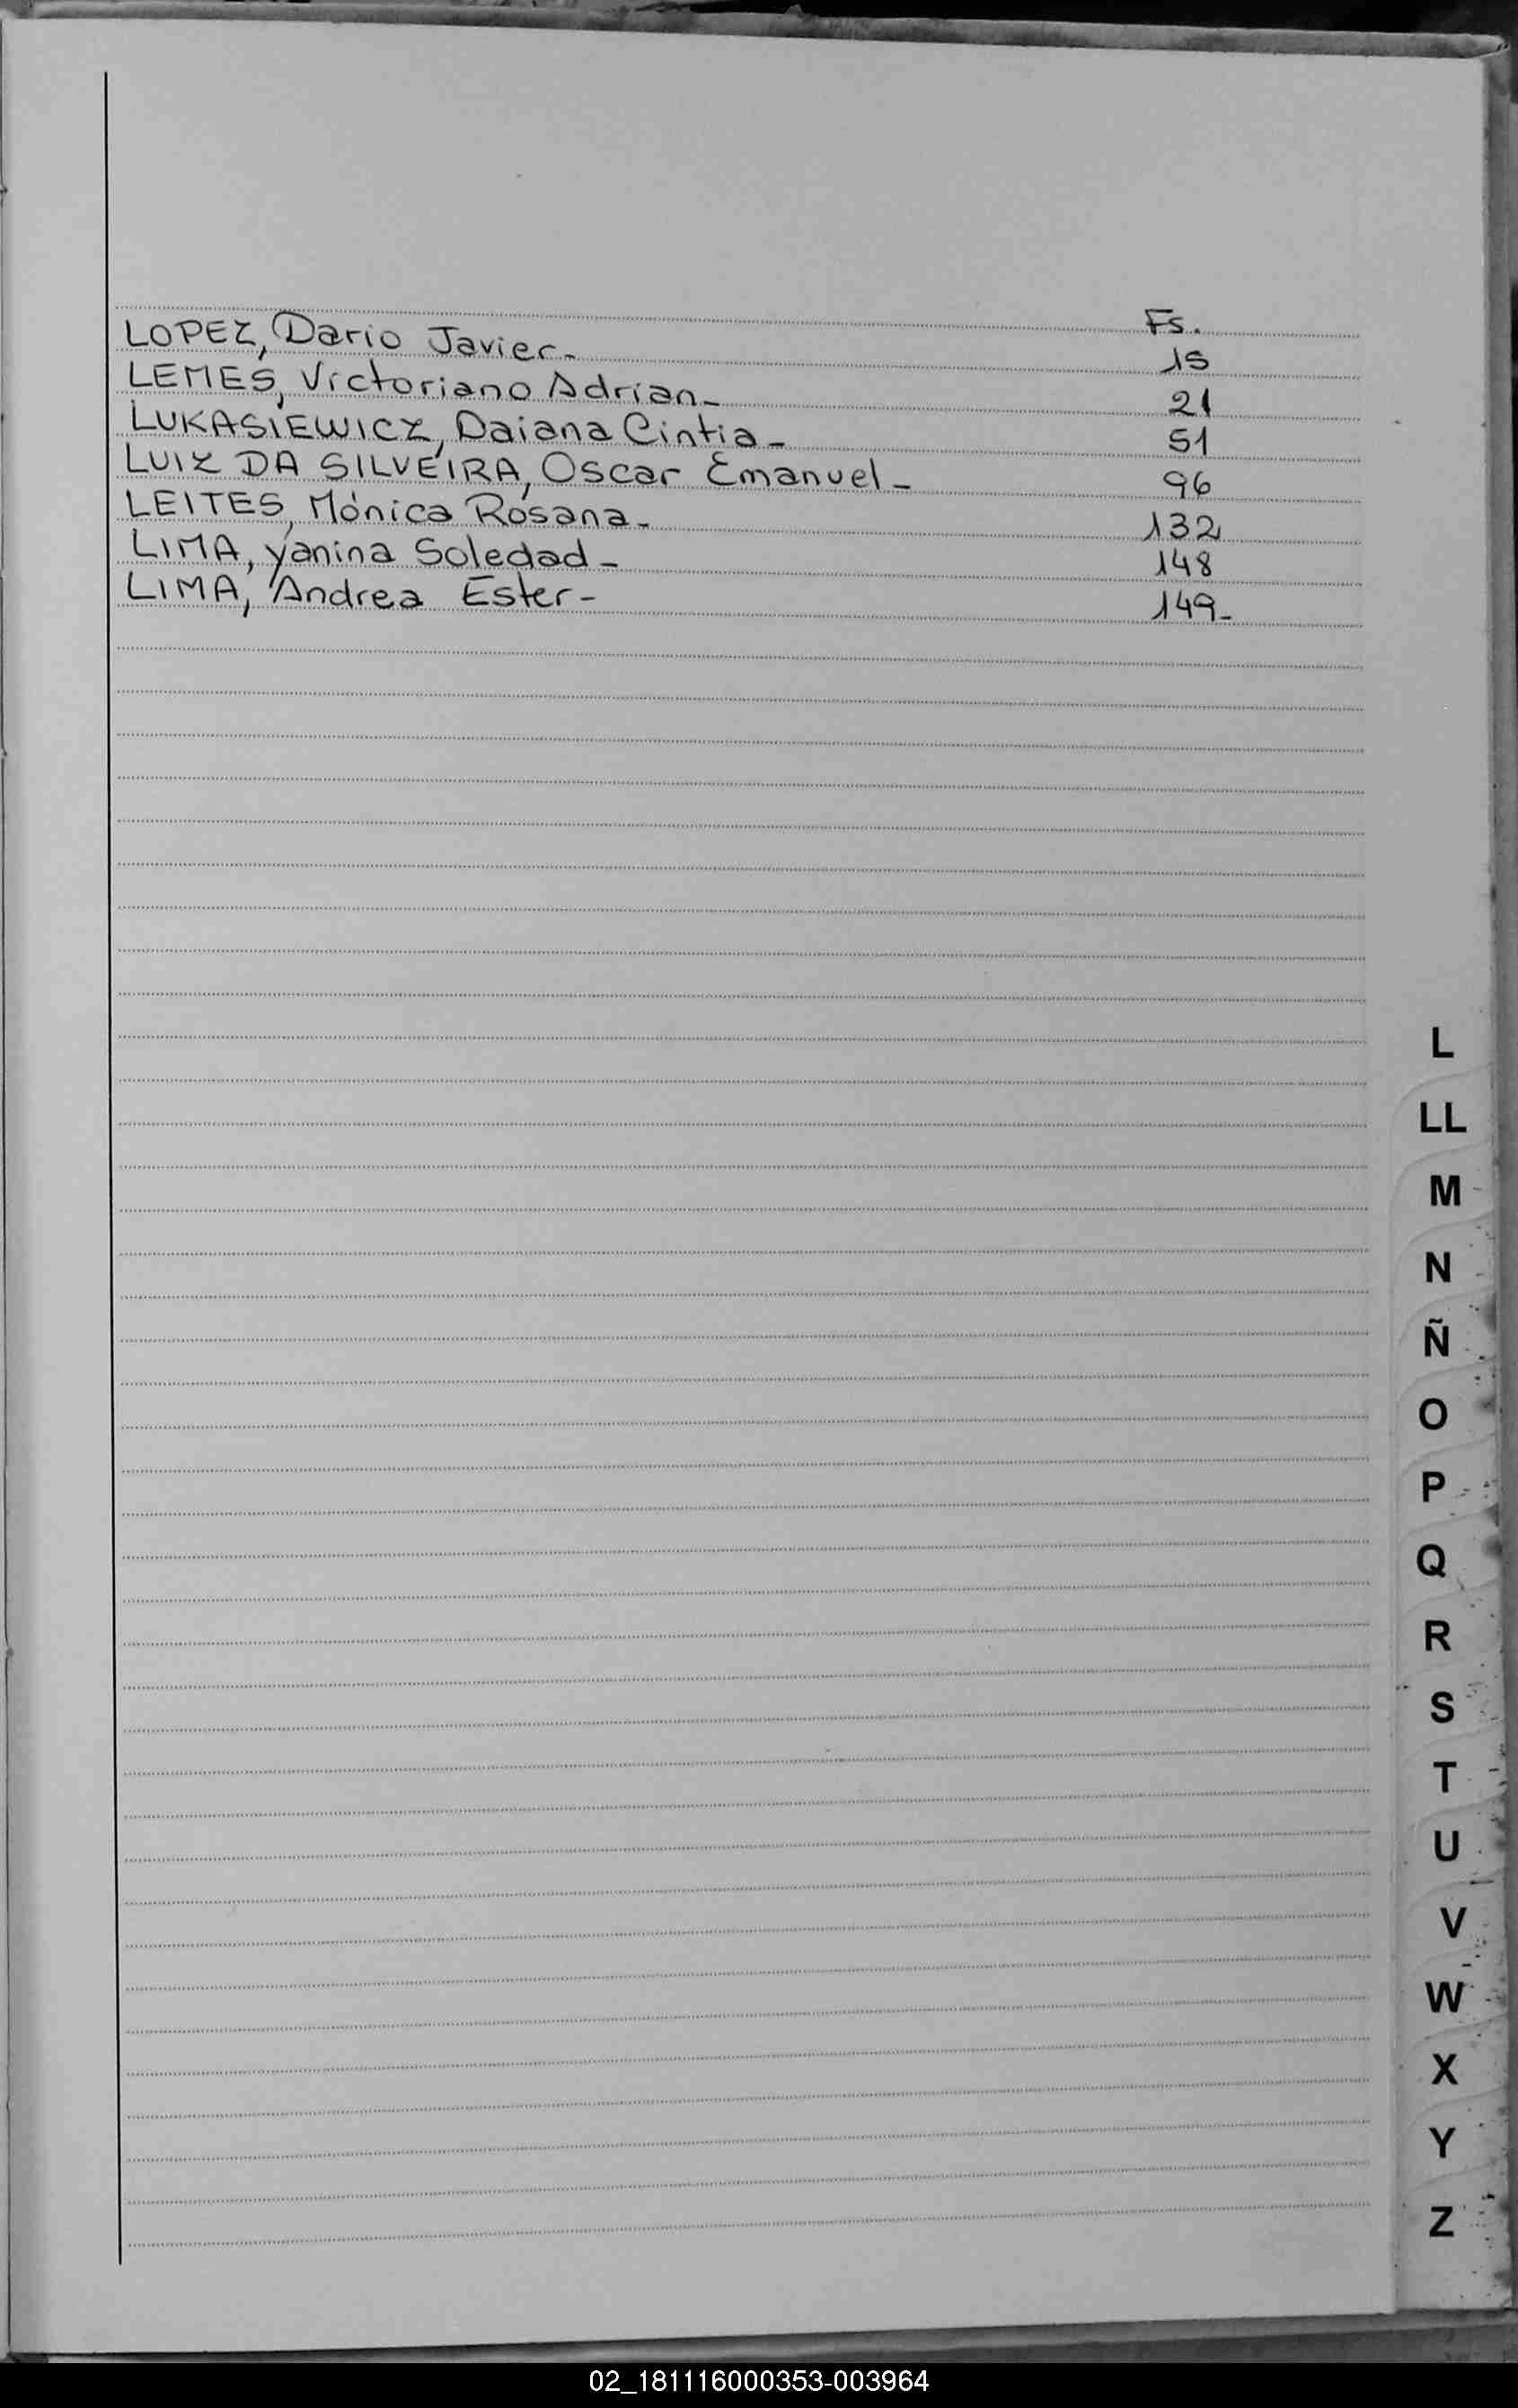 Fs.
LOPEZ, Dario Javier- 15
LEMES, Victoriano Adrian- 21
LUKASIEWICZ, Daiana Cintia- 51
LUIZ DA SILVEIRA, Oscar Emanuel- 96
LEITES, Mónica Rosana- 132
LIMA, Yanina Soledad- 148
LIMA, Andrea Ester- 149-
L
LL
M
N
Ñ
O
P
Q
R
S
T
U
V
W
X
Y
Z
02_181116000353-003964